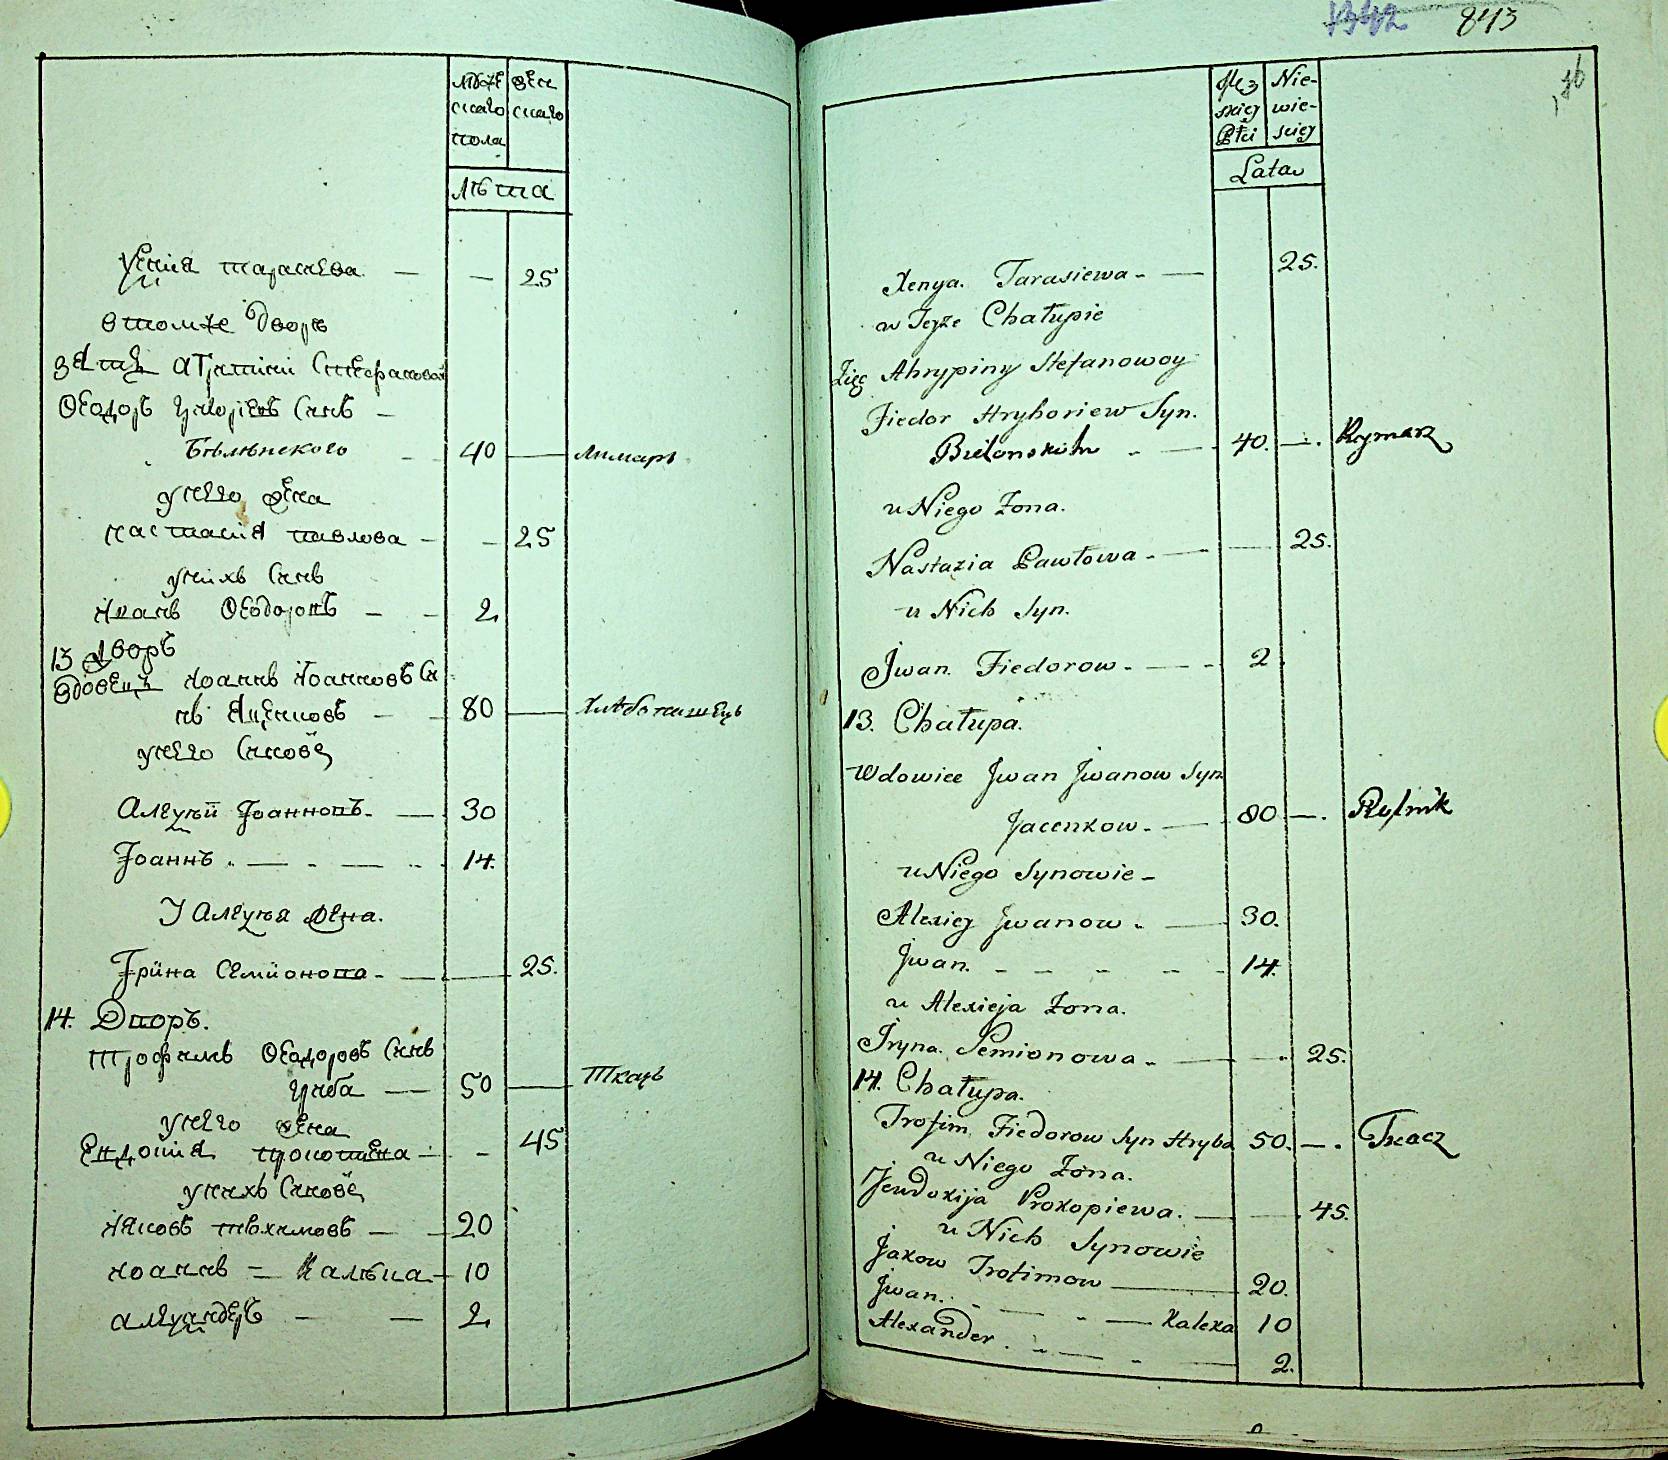 мужескаго пола
женскаго
лѣта
Ксенія тарасиева — — 25
втомже дворѣ
зять агрипини стефановой
Ѳеодоръ григориевъ синъ —
Бѣлѣнского — 40 — лимарь
унего жена
настасия павлова — — 25
унихъ синъ
иванъ Ѳеодоровъ — — 2
13 дворъ
вдовецъ иоаннъ иоанновъ си
нъ яценковъ — — 80 — хлѣбопашецъ
унего синовѣ
Алеѯѣй Іоанновъ. — 30
Іоаннъ . — . — .. 14.
У Алеѯѣя жена.
Ірина Семионова - — 25.
14. Дворъ.
трофимъ Ѳеодоровъ синъ
гриба — 50 — Ткачь
унего жена
Евдокия прокопиева — - 45
унихъ синовѣ
яковъ трохимовъ — 20
иоаннъ = калѣка — 10
алеѯандеръ — — 2
1342 843
Męzskiey Płci
Niewiesciey
Lata
Xenya. Tarasiewa - — 25.
w Teyże Chałupie
Zięć Ahrypiny Stefanowoy
Fiedor Hryhoriew Syn.
Bielonskoho - — 40. — . Rymarz
u Niego Żona.
Nastazia Pawłowa - — — 25.
u Nich Syn.
Jwan Fiedorow - — - 2
13. Chałupa.
Wdowiec Jwan Jwanow Syn
Jacenkow - — 80 — . Rolnik
u Niego Synowie -
Alexiey Jwanow - — 30.
Jwan. - - - - - 14.
u Alexieja Żona.
Jryna. Semionowa - — - 25.
14. Chałupa.
Trofim Fiedorow Syn Hryba 50. — . Tkacz
u Niego Żona.
Jewdokija Prokopiewa. — — 45.
u Nich Synowie
Jakow Trofimow — 20.
Jwan. - — - — Kaleka 10
Alexander . - — - — 2.